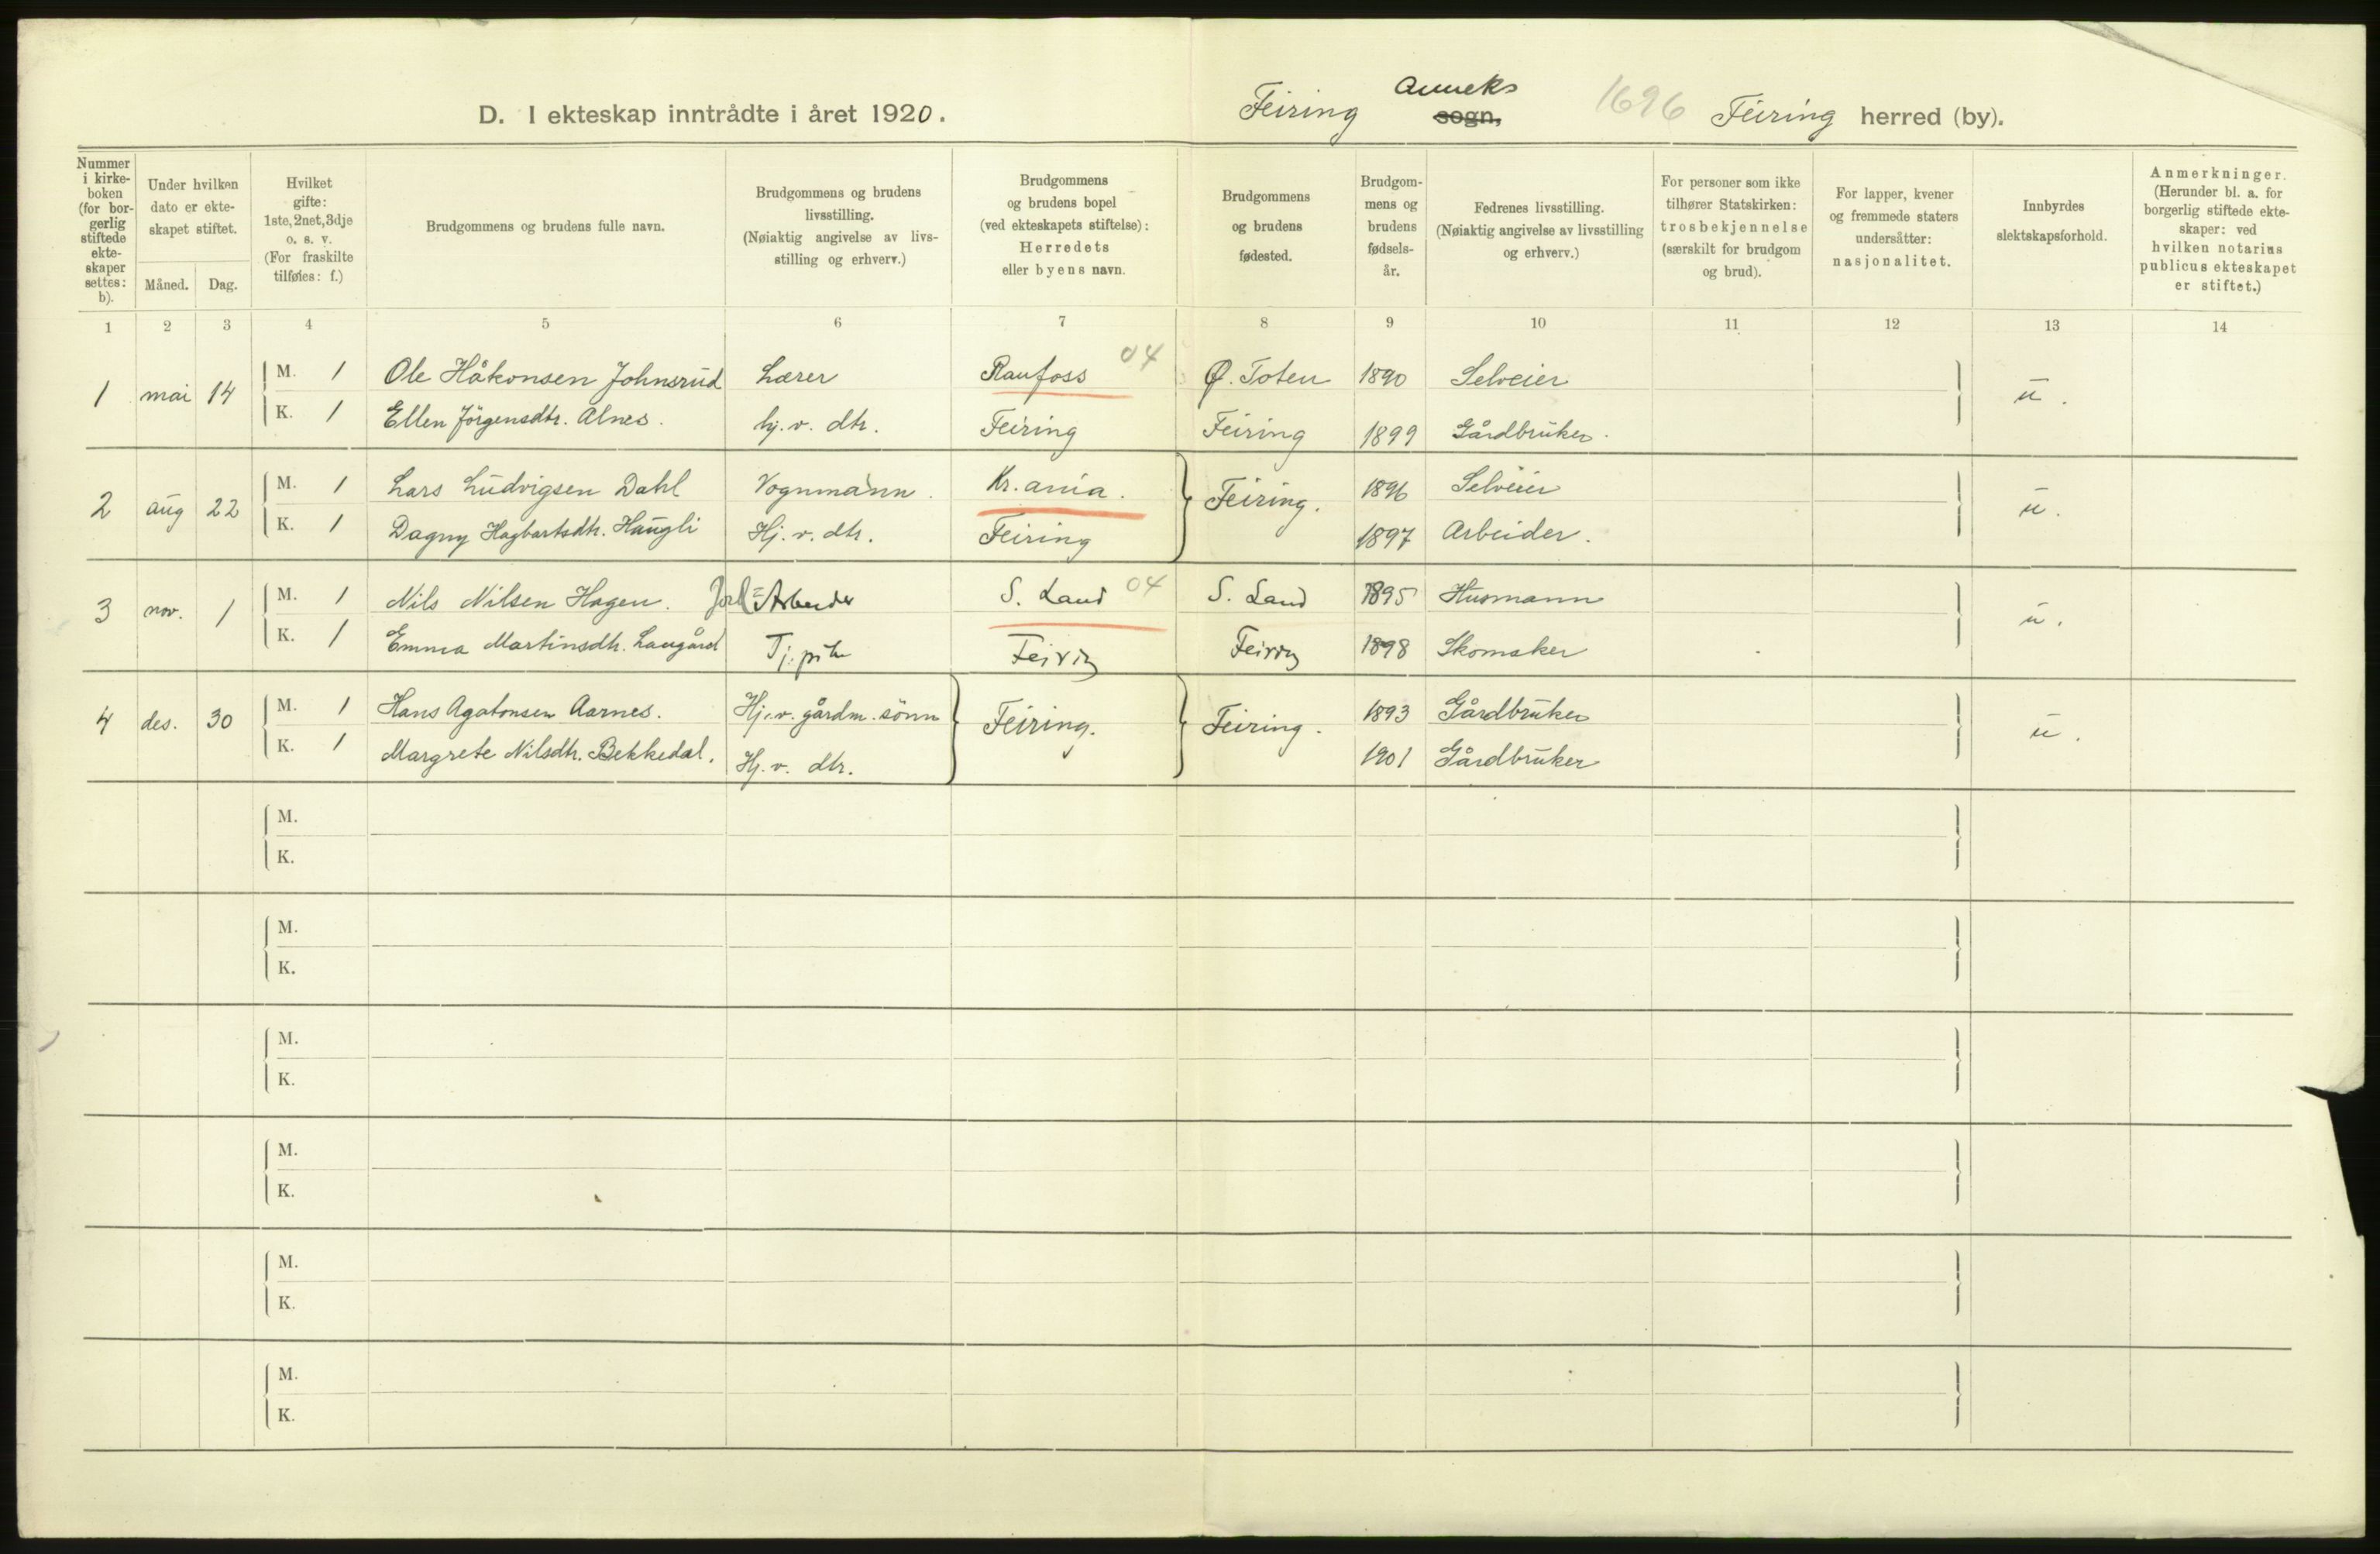 D. I ekteskap inntrådte i året 1920.
Feiring Anneks sogn, 1696 Feiring herred (by).
Nummer i kirkeboken (for borgerlig stiftede ekteskaper settes: b).
Under hvilken dato er ekteskapet stiftet.
Måned. Dag.
Hvilket gifte: 1ste, 2net, 3dje o. s. v. (For fraskilte tilføies: f.)
Brudgommens og brudens fulle navn.
Brudgommens og brudens livsstilling. (Nøiaktig angivelse av livsstilling og erhverv.)
Brudgommens og brudens bopel (ved ekteskapets stiftelse): Herredets eller byens navn.
Brudgommens og brudens fødested.
Brudgommens og brudens fødselsår.
Fedrenes livsstilling. (Nøiaktig angivelse av livsstilling og erhverv.)
For personer som ikke tilhører Statskirken: trosbekjennelse (særskilt for brudgom og brud).
For lapper, kvener og fremmede staters undersåtter: nasjonalitet.
Innbyrdes slektskapsforhold.
Anmerkninger. (Herunder bl. a. for borgerlig stiftede ekteskaper: ved hvilken notarius publicus ekteskapet er stiftet.)
1 2 3 4 5 6 7 8 9 10 11 12 13 14
1 mai 14 M. 1 Ole Håkonsen Johnsrud Lærer Raufoss 04 Ø. Toten 1890 Selveier u.
K. 1 Ellen Jörgensdtr. Alnes. hj. v. dtr. Feiring Feiring 1899 Gårdbruker.
2 aug 22 M. 1 Lars Ludvigsen Dahl Vognmann. Kr.ania. Feiring. 1896 Selveier u.
K. 1 Dagny Hagbartsdtr. Haugli Hj. v. dtr. Feiring 1897 Arbeider.
3 nov. 1 M. 1 Nils Nilsen Hagen. Arbeider S. Land 04 S. Land 1895 Husmann u.
K. 1 Emma Martinsdtr. Laugård Tj. pike Feiring Feiring 1898 Skomaker
4 des. 30 M. 1 Hans Agatonsen Aarnes. Hj. v. gårdm. sönn Feiring. Feiring. 1893 Gårdbruker u.
K. 1 Margrete Nilsdtr. Bekkedal. Hj. v. dtr. 1901 Gårdbruker
M.
K.
M.
K.
M.
K.
M.
K.
M.
K.
M.
K.